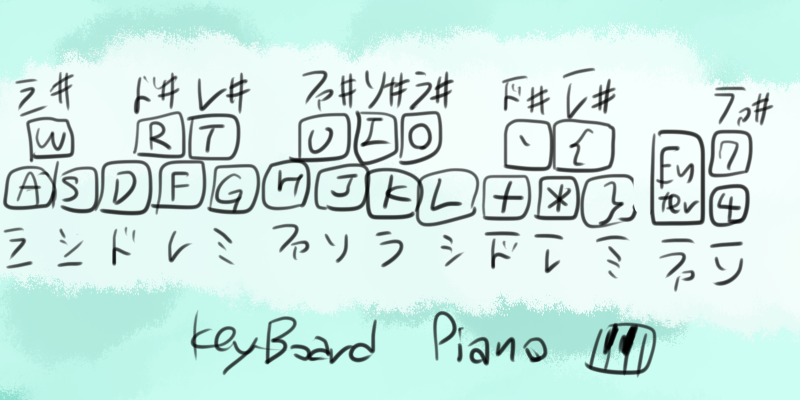 ラ# ド# レ# ファ# ソ# ラ# ド# レ# ファ#
W R T U I O ` { 7
A S D F G H J K L + * } Enter 4
ラ シ ド レ ミ ファ ソ ラ シ ド レ ミ ファ ソ
keyBoard Piano